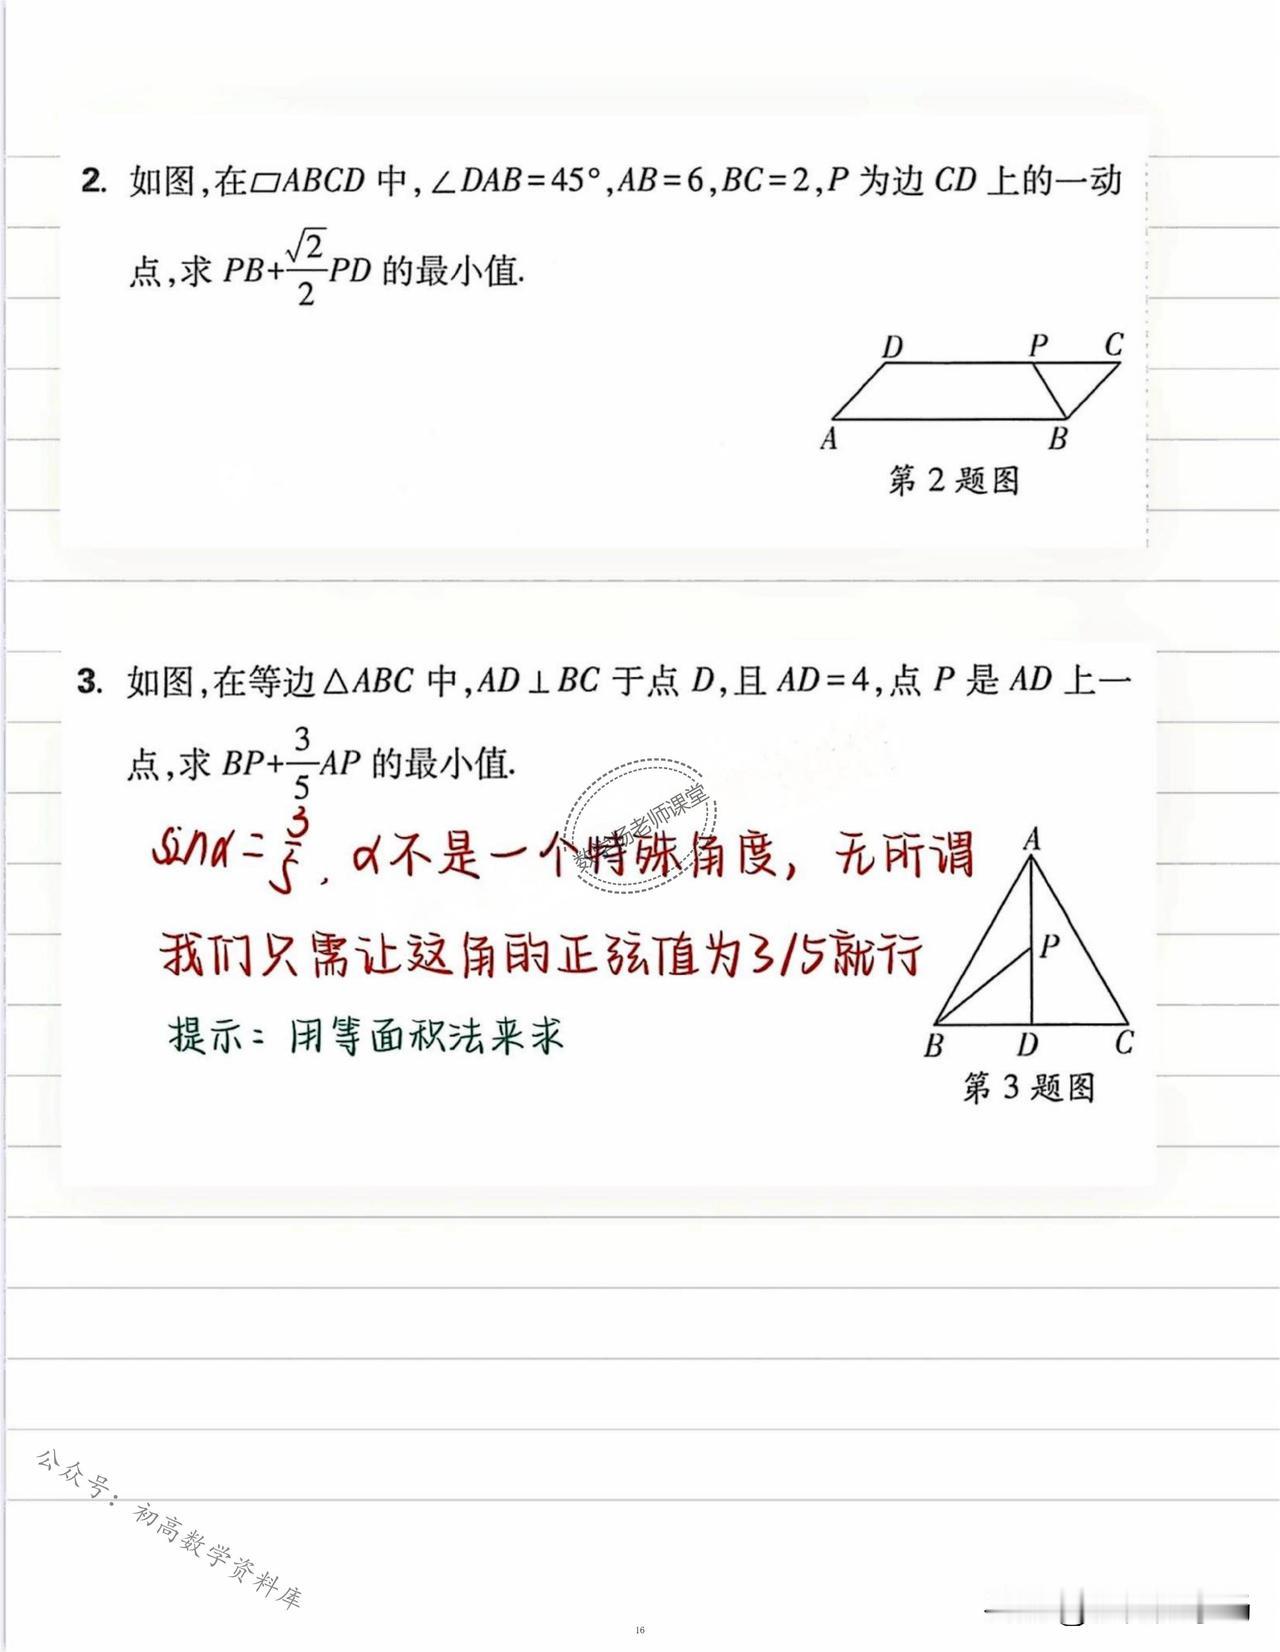 2. 如图,在▱ABCD 中,∠DAB=45°,AB=6,BC=2,P 为边 CD 上的一动
点,求 PB+√2/2 PD 的最小值.
D P C
A B
第 2 题图
3. 如图,在等边△ABC 中,AD⊥BC 于点 D,且 AD=4,点 P 是 AD 上一
点,求 BP+3/5 AP 的最小值.
数学杨老师课堂
sinα=3/5, α不是一个特殊角度, 无所谓
我们只需让这角的正弦值为3/5就行
提示: 用等面积法来求
A
P
B D C
第 3 题图
公众号: 初高数学资料库
16